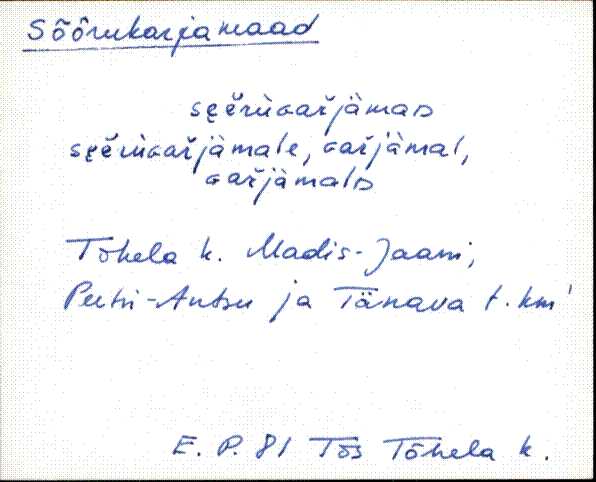 Sõõrukarjamaad
sęĕrùɢař̆jämaᴅ
sęĕrùɢař̆jämale, ɢařjämal,
ɢařjämalᴅ
Tõhela k. Madis-Jaani,
Peetri-Antsu ja Tänava t. km'
E. P. 81 Tõs Tõhela k.